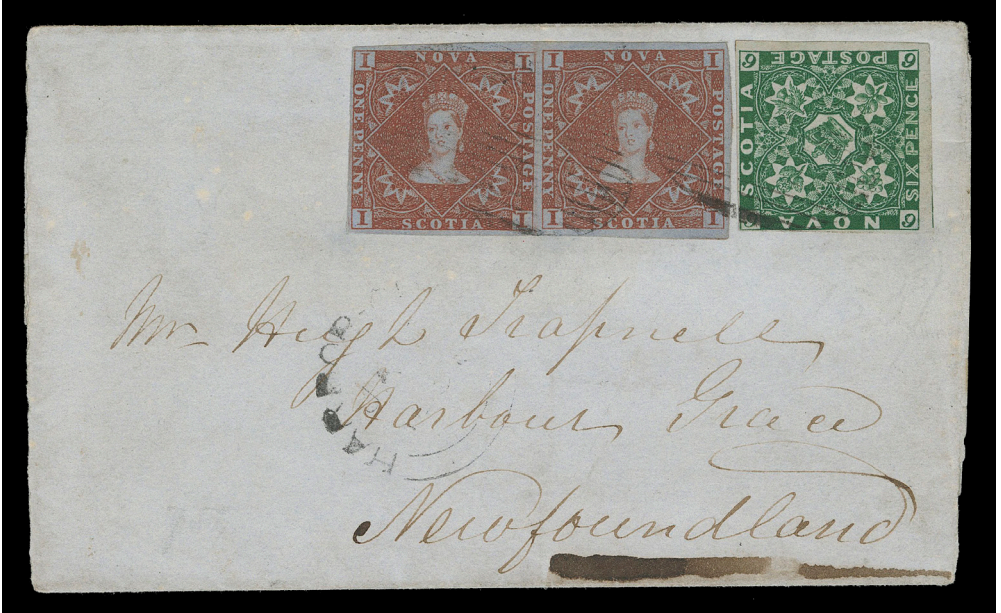 1 NOVA 1
ONE PENNY
POSTAGE
1 SCOTIA 1
1 NOVA 1
ONE PENNY
POSTAGE
1 SCOTIA 1
6 POSTAGE 6
SCOTIA
SIX PENCE
6 NOVA 6
Mr Hugh Trapnell
Harbour Grace
Newfoundland
HARBOR